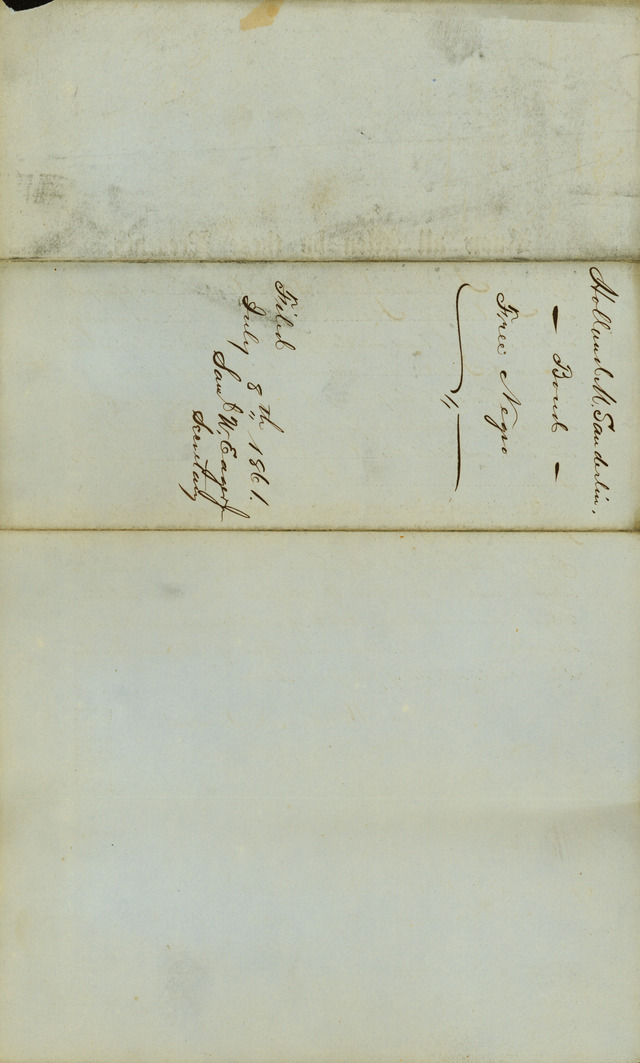 Holland M. Sanderlin.
— Bond —
Free Negro
Filed
July 8th 1861.
Saml W. Eager Jr
Secretary